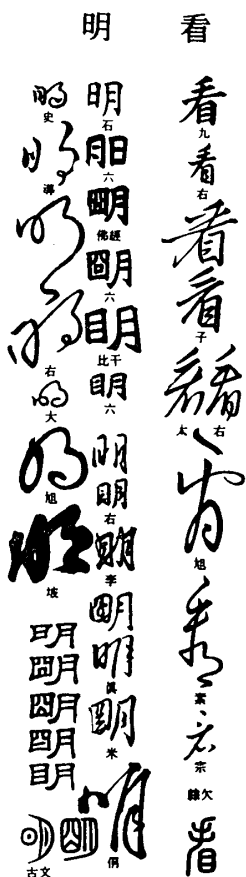 看
看
九
看
右
看
看
子
看看
太 右
看
旭
看
素
看
宗
隸欠
看
明
明
石
明
六
明
佛經
明
六
明
比干
明
六
明
明
右
明
李
明
明
眞
明
米
明
侗
明
史
明
導
明
明
右
明
大
明
旭
明
坡
明
明
明
明
明
明明
古文